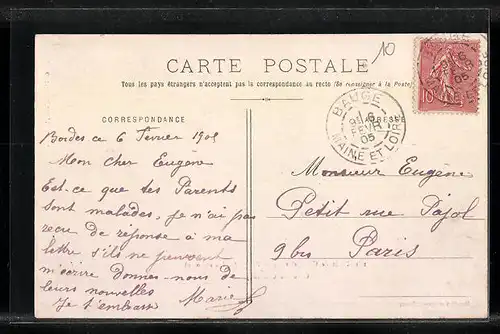 10
CARTE POSTALE
Tous les pays étrangers n'acceptent pas la correspondance au recto (Se renseigner à la Poste)
CORRESPONDANCE
ADRESSE
BAUGÉ
6
FEVR
05
MAINE ET LOIRE
10
Bordes ce 6 Février 1905
Mon cher Eugène
Est-ce que tes Parents
sont malades, je n'ai pas
recu de réponse à ma
lettre s'ils ne peuvent
m'écrire donne-nous de
leurs nouvelles
Je t'embrasse Marie
Monsieur Eugène
Petit rue Pajol
9 bis Paris